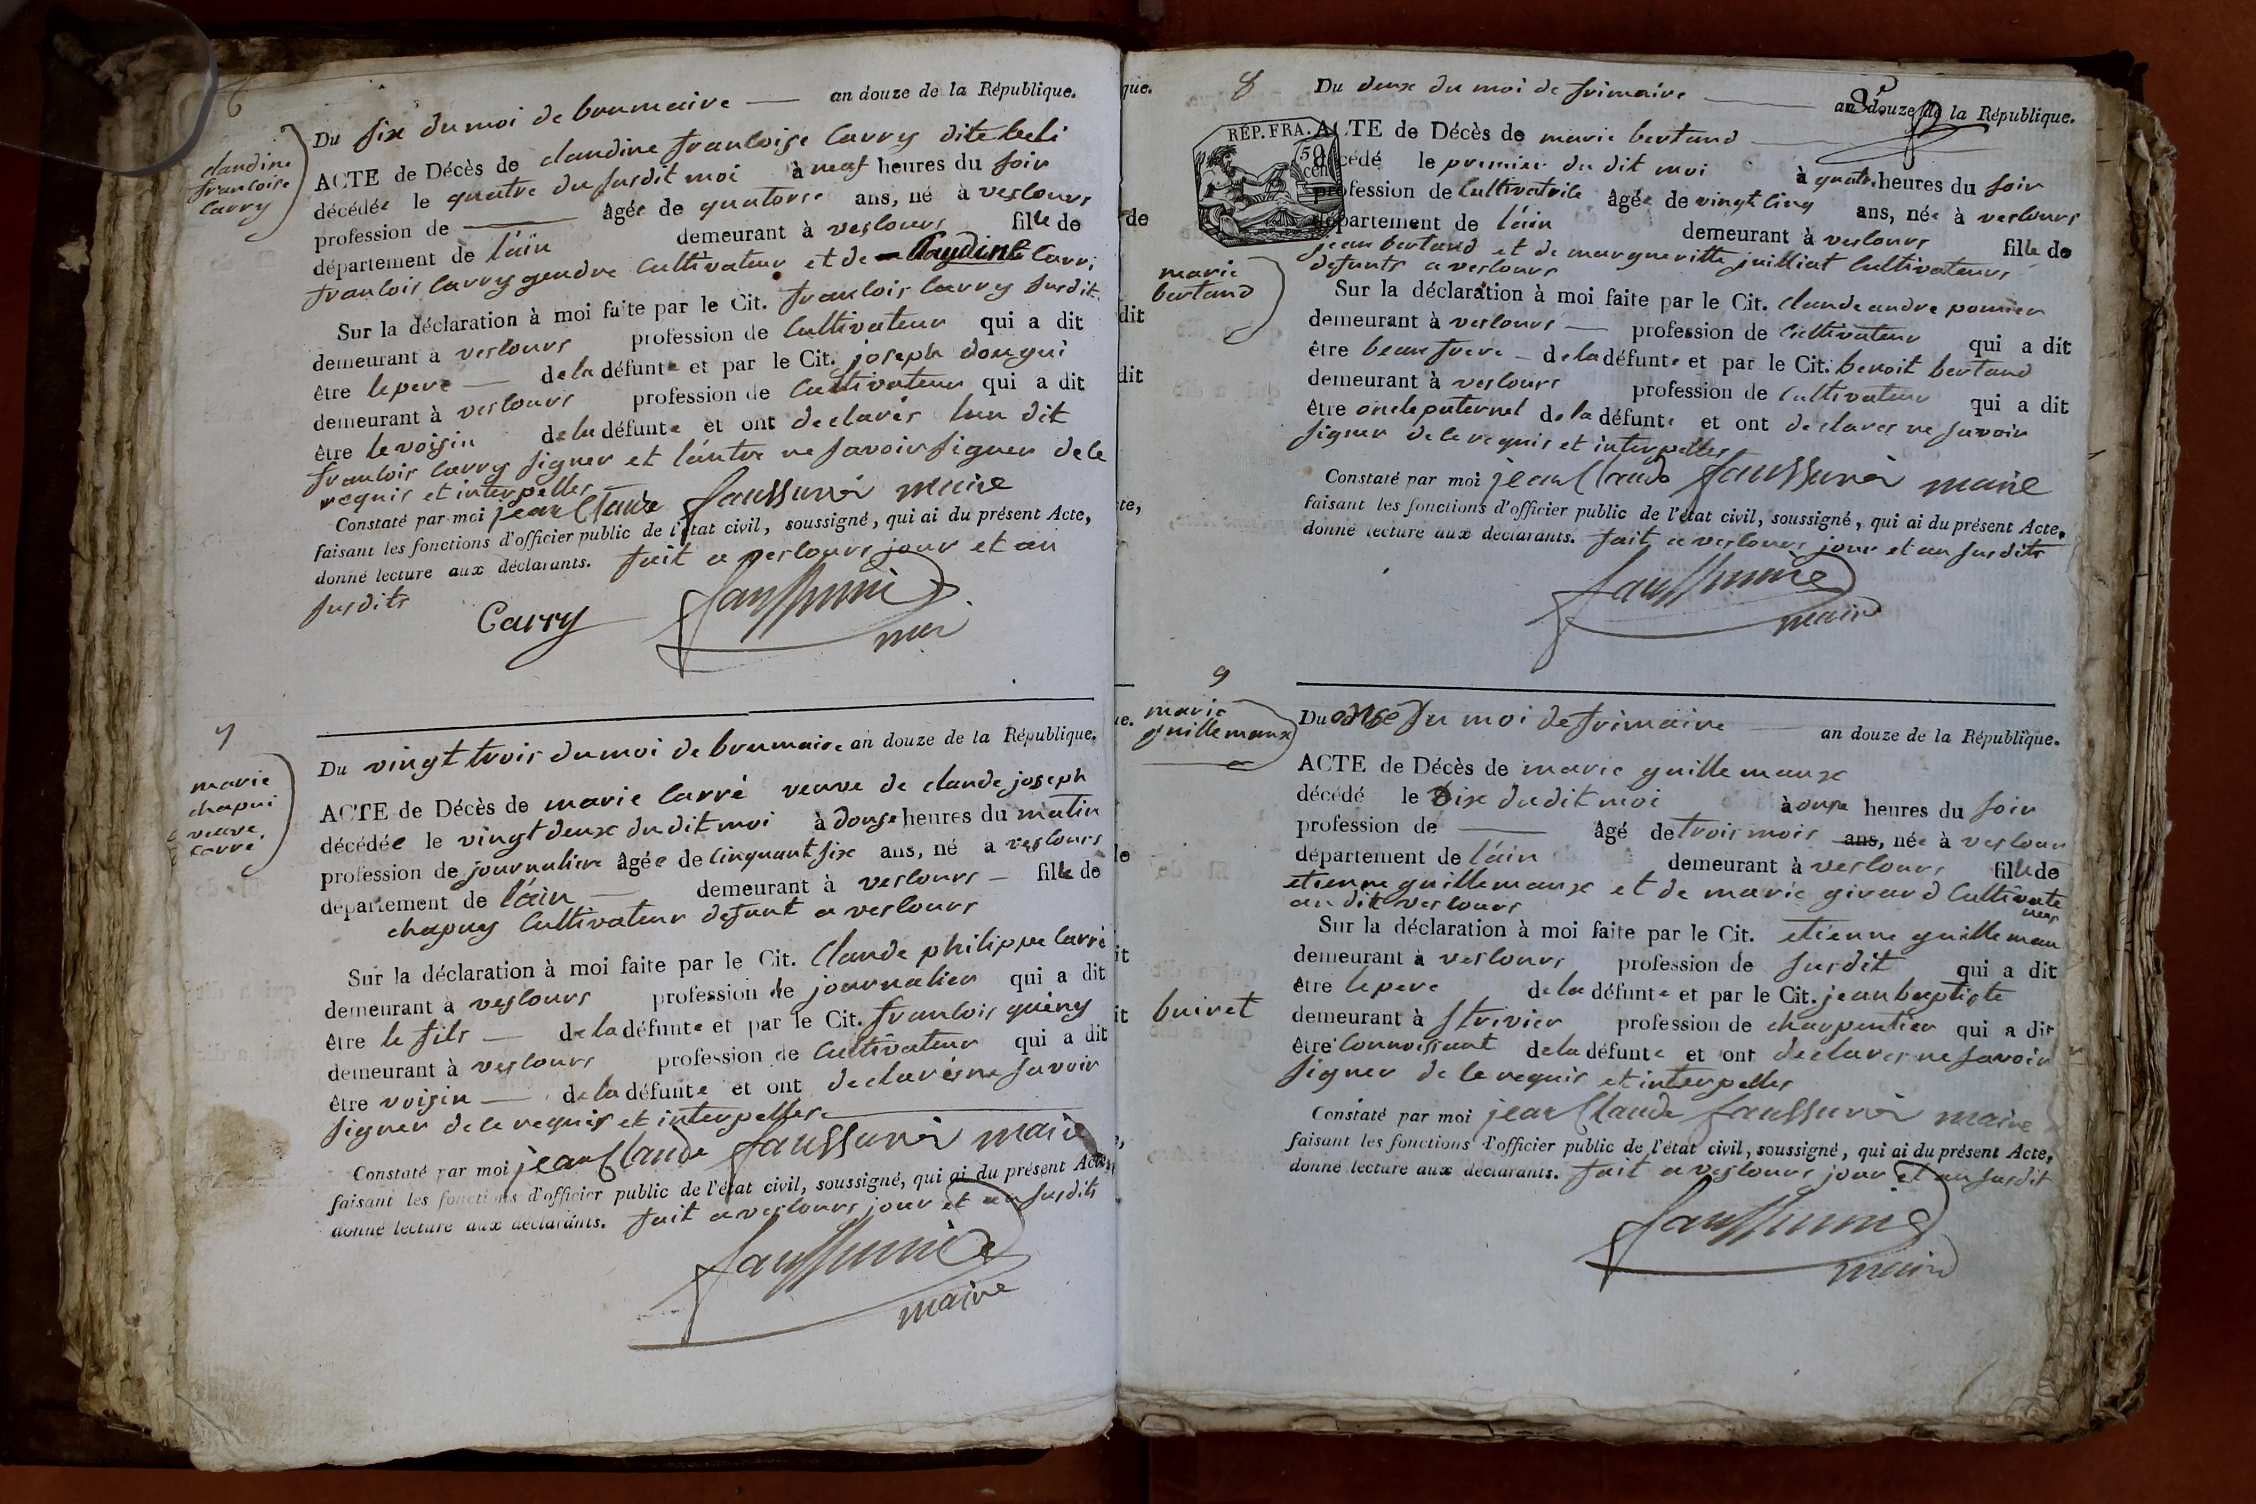 6
claudine
francoise
Carry
Du six du moi de brumaire — an douze de la République.
ACTE de Décès de claudine francoise Carry dite beli
décédée le quatre du susdit moi à neuf heures du soir
profession de — âgée de quatorse ans, né à veslours
département de l'áin demeurant à veslours fille de
francois Carry gendre Cultivateur et de Claudine Carri
Sur la déclaration à moi faite par le Cit. francois Carry susdit
demeurant à veslours profession de Cultivateur qui a dit
être le pere — de la défunte et par le Cit. joseph dougui
demeurant à veslours profession de Cultivateur qui a dit
être le voisin de la défunte et ont declarés lun dit
francois Carry signer et l'autre ne savoir signer de ce
requis et interpelles
Constaté par moi jean Claude maire
faisant les fonctions d'officier public de l'état civil, soussigné, qui ai du présent Acte,
donné lecture aux déclarants. fait a veslours jour et an
susdits
Carry
7
marie
chapui
veuve
carré
Du vingt trois du moi de brumaire an douze de la République.
ACTE de Décès de marie Carré veuve de claude joseph
décédée le vingt deux du dit moi à douse heures du matin
profession de journaliere âgée de Cinquant six ans, né a veslours
département de l'áin — demeurant à veslours — fille de
chapuy Cultivateur defunt a veslours
Sur la déclaration à moi faite par le Cit. Claude philippe Carré
demeurant à veslours profession de journalier qui a dit
être le fils — de la défunte et par le Cit. francois guény
demeurant à veslours profession de Cultivateur qui a dit
être voisin — de la défunte et ont declarés ne savoir
signer de ce requis et interpelles
Constaté par moi jean Claude maire
faisant les fonctions d'officier public de l'état civil, soussigné, qui ai du présent Acte,
donné lecture aux déclarants. fait a veslours jour et an susdits
maire
8
Du deux du moi de frimaire — an douze de la République.
RÉP. FRA.
50
cen
ACTE de Décès de marie bertand
décédé le premier du dit moi à quatre heures du soir
profession de Cultivatrice âgée de vingt cinq ans, née à veslours
département de l'áin demeurant à veslours fille de
jean bertand et de margueritte juilliat Cultivateurs
defunts a veslours
marie
bertand
Sur la déclaration à moi faite par le Cit. claude andre pomier
demeurant à veslours — profession de Cultivateur qui a dit
être beau frere — de la défunte et par le Cit. benoit bertand
demeurant à veslours profession de Cultivateur qui a dit
être oncle paternel de la défunte et ont declares ne savoir
signer de ce requis et interpelles
Constaté par moi jean Claude maire
faisant les fonctions d'officier public de l'état civil, soussigné, qui ai du présent Acte,
donné lecture aux déclarants. fait a veslours jour et an susdits
maire
9
marie
guillemaux
Du onse du moi de frimaire — an douze de la République.
ACTE de Décès de marie guille maux
décédé le Dix du dit moi à onse heures du soir
profession de — âgé de trois mois ans, née à veslours
département de l'áin demeurant à veslours fille de
etienne guillemaux et de marie girard Cultivate
urs
au dit veslours
Sur la déclaration à moi faite par le Cit. etienne guille mau
demeurant à veslours profession de susdit qui a dit
être le pere de la défunte et par le Cit. jean baptiste
buiret
demeurant à St rivier profession de charpentier qui a dit
être Connoissant de la défunte et ont declares ne savoir
signer de ce requis et interpelles
Constaté par moi jean Claude maire
faisant les fonctions d'officier public de l'état civil, soussigné, qui ai du présent Acte,
donné lecture aux déclarants. fait a veslours jour et an susdit
maire